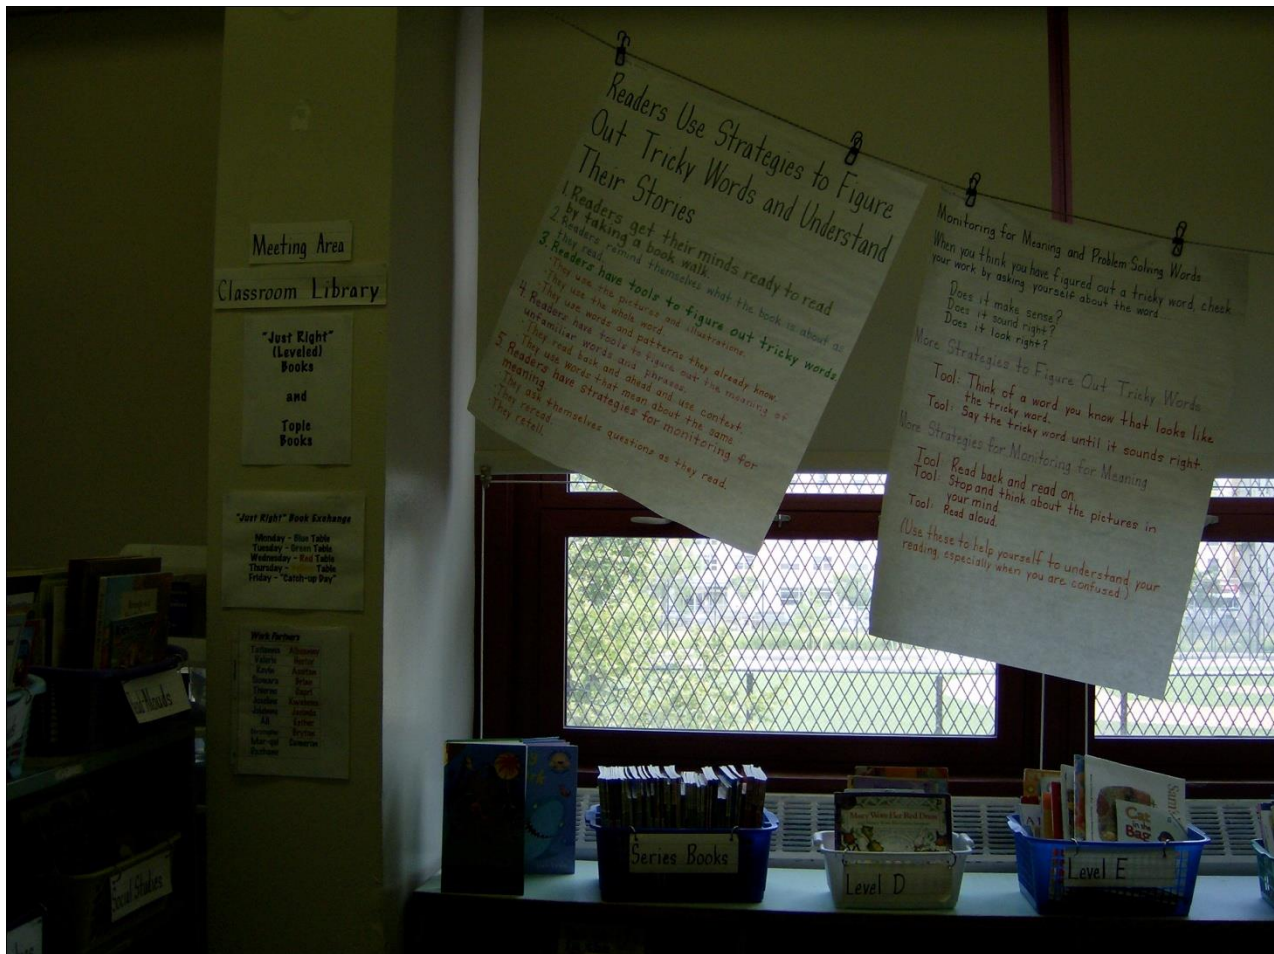 Meeting Area
Classroom Library
"Just Right"
(Leveled)
Books
and
Topic
Books
"Just Right" Book Exchange
Monday - Blue Table
Tuesday - Green Table
Wednesday - Red Table
Thursday - Yellow Table
Friday - "Catch-up Day"
Work Partners
Valerie
Kevin
Austin
Brian
Ali
Esther
Cameron
Readers Use Strategies to Figure
Out Tricky Words and Understand
Their Stories
1. Readers get their minds ready to read
by taking a book walk.
2. Readers remind themselves what the book is about as
they read.
3. Readers have tools to figure out tricky words
- They use the pictures and illustrations.
- They use the whole word.
- They use words and patterns they already know.
4. Readers have tools to figure out the meaning of
unfamiliar words and phrases.
- They read back and ahead and use context.
- They use words that mean about the same
5. Readers have strategies for monitoring for
meaning
- They ask themselves questions as they read.
- They reread.
- They retell.
Monitoring for Meaning and Problem Solving Words
When you think you have figured out a tricky word, check
your work by asking yourself about the word.
Does it make sense?
Does it sound right?
Does it look right?
More Strategies to Figure Out Tricky Words
Tool: Think of a word you know that looks like
the tricky word.
Tool: Say the tricky word until it sounds right.
More Strategies for Monitoring for Meaning
Tool: Read back and read on.
Tool: Stop and think about the pictures in
your mind.
Tool: Read aloud.
(Use these to help yourself to understand your
reading, especially when you are confused.)
Social Studies
Series Books
Level D
Level E
Cat
in the
Bag